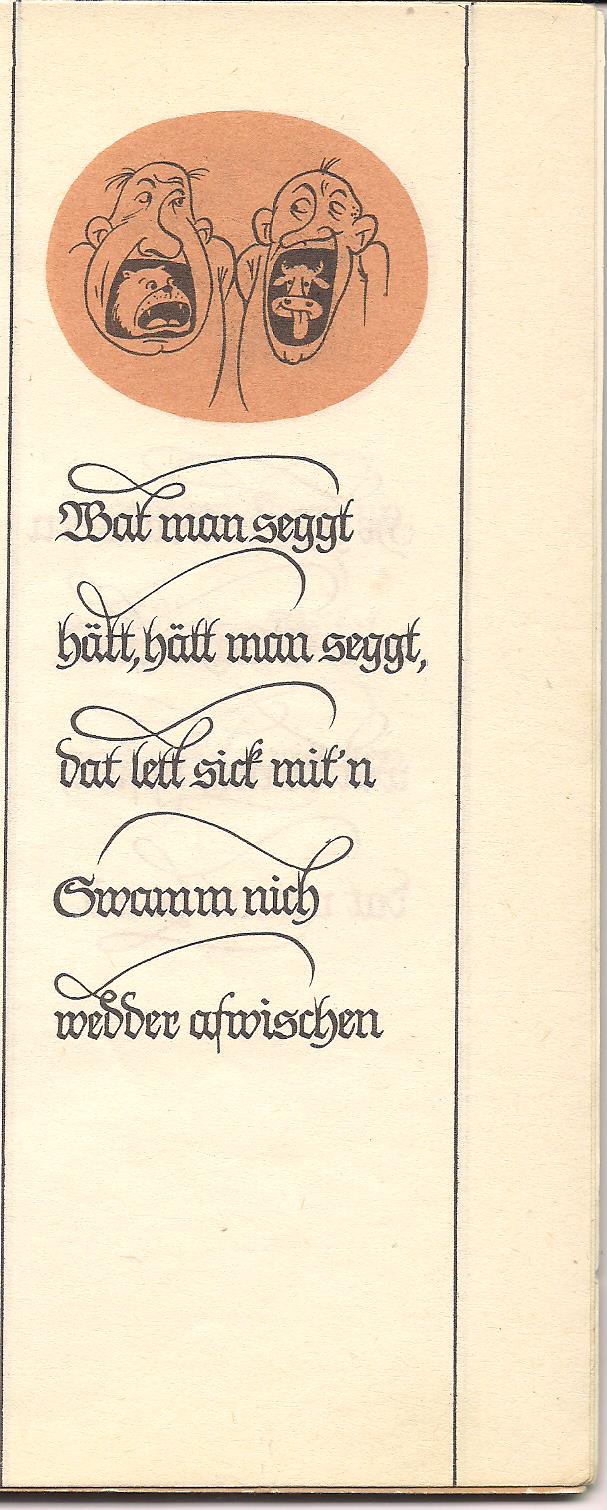 Wat man seggt
hätt, hätt man seggt,
dat lett sick mit'n
Swamm nich
wedder afwischen